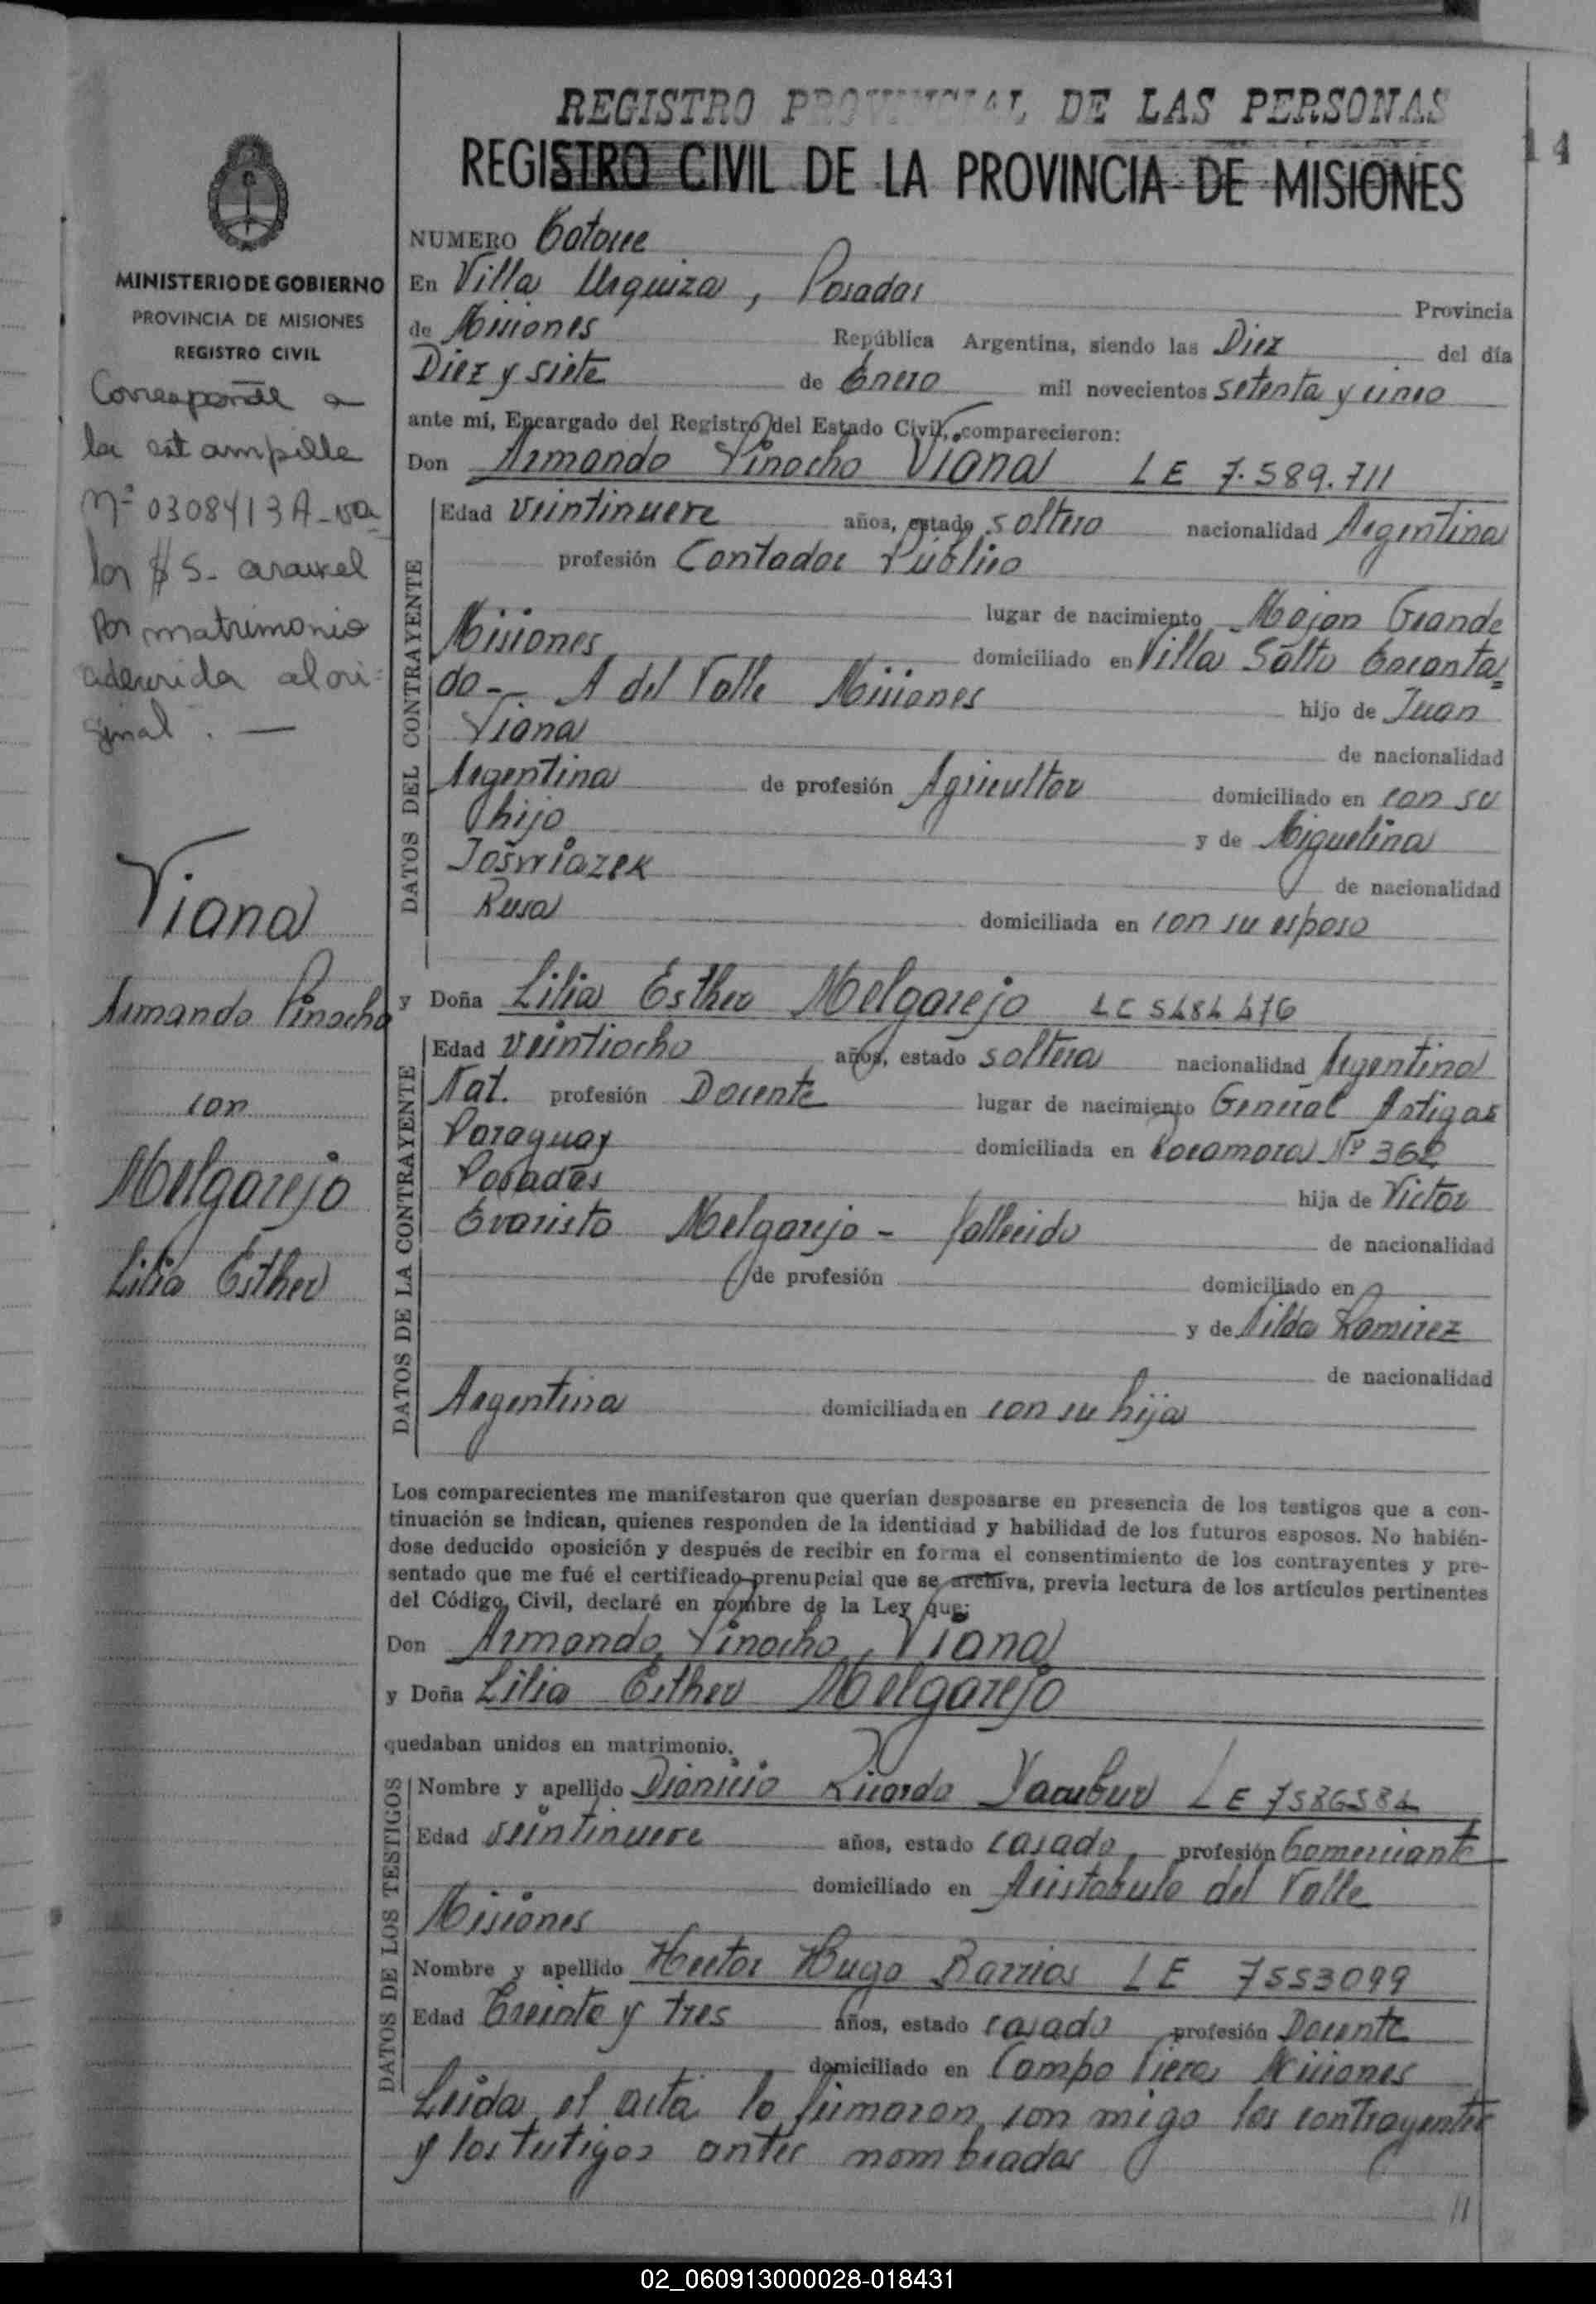 REGISTRO PROVINCIAL DE LAS PERSONAS
REGISTRO CIVIL DE LA PROVINCIA DE MISIONES
14
MINISTERIO DE GOBIERNO
PROVINCIA DE MISIONES
REGISTRO CIVIL
Corresponde a
la estampilla
Nº 0308413A - va
lor $ 5 - arancel
por matrimonio
adherida al ori-
ginal. —
Viana
Armando Pinocho
con
Melgarejo
Lilia Esther
NUMERO Catorce
En Villa Urquiza, Posadas Provincia
de Misiones República Argentina, siendo las Diez del día
Diez y siete de Enero mil novecientos setenta y cinco
ante mi, Encargado del Registro del Estado Civil, comparecieron:
Don Armando Pinocho Viana LE 7.589.711
DATOS DEL CONTRAYENTE
Edad veintinueve años, estado soltero nacionalidad Argentina
profesión Contador Público
lugar de nacimiento Mojon Grande
Misiones domiciliado en Villa Salto Encanta=
do - A del Valle Misiones hijo de Juan
Viana de nacionalidad
Argentina de profesión Agricultor domiciliado en con su
hijo y de Miguelina
Joświazek de nacionalidad
Rusa domiciliada en con su esposo
y Doña Lilia Esther Melgarejo LC 5484476
DATOS DE LA CONTRAYENTE
Edad veintiocho años, estado soltera nacionalidad Argentina
Nat. profesión Docente lugar de nacimiento General Artigas
Paraguay domiciliada en Rocamora Nº 362
Posadas hija de Victor
Evaristo Melgarejo - fallecido de nacionalidad
de profesión domiciliado en
y de Nilda Ramirez
de nacionalidad
Argentina domiciliada en con su hija
Los comparecientes me manifestaron que querían desposarse en presencia de los testigos que a con-
tinuación se indican, quienes responden de la identidad y habilidad de los futuros esposos. No habién-
dose deducido oposición y después de recibir en forma el consentimiento de los contrayentes y pre-
sentado que me fué el certificado prenupcial que se archiva, previa lectura de los artículos pertinentes
del Código Civil, declaré en nombre de la Ley que:
Don Armando Pinocho Viana
y Doña Lilia Esther Melgarejo
quedaban unidos en matrimonio.
DATOS DE LOS TESTIGOS
Nombre y apellido Dionicio Ricardo Yacubur LE 7586584
Edad veintinueve años, estado casado profesión Comerciante
domiciliado en Aristobulo del Valle
Misiones
Nombre y apellido Hector Hugo Barrios LE 7553099
Edad Treinta y tres años, estado casado profesión Docente
domiciliado en Campo Viera Misiones
Leida el acta la firmaron con migo los contrayentes
y los testigos antes nombrados
02_060913000028-018431